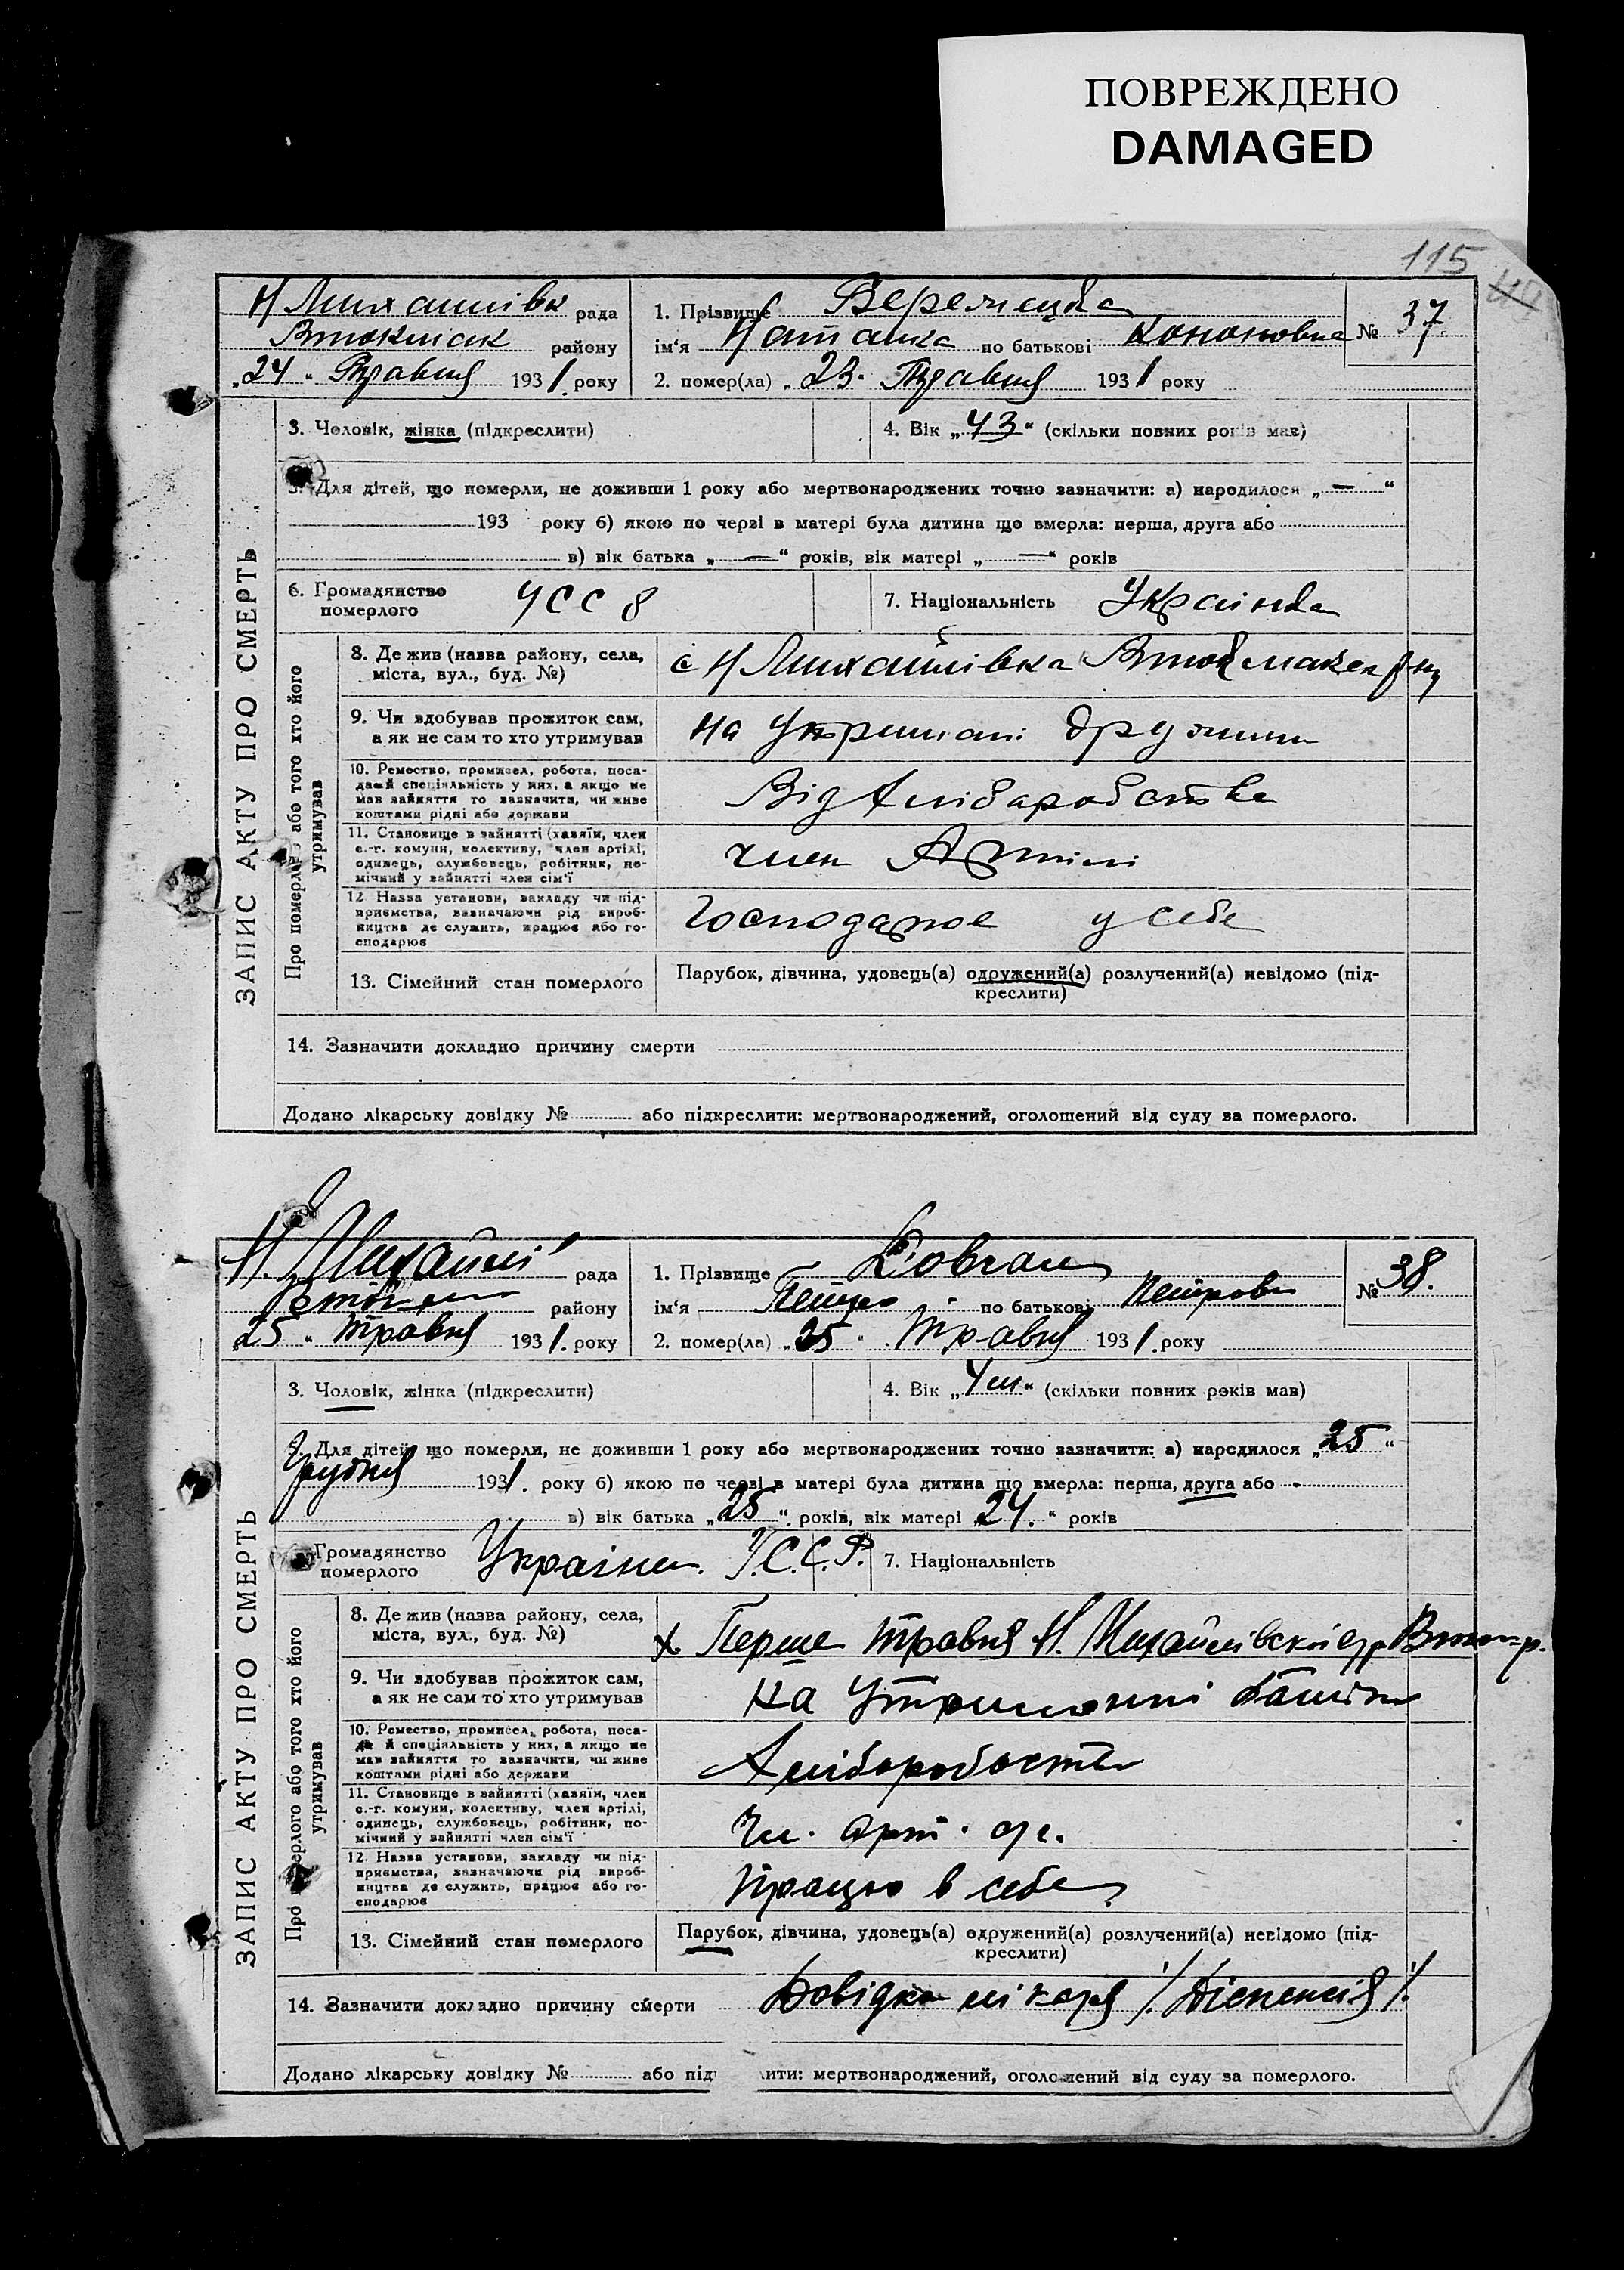 ПОВРЕЖДЕНО
DAMAGED
115
Н Михайлівк рада
Втокмак району
„24“ Травня 1931 року
1. Прізвище
ім'я Наталка по батькові Кононовна
№ 37.
2. помер(ла) „23“ Травня 1931 року
ЗАПИС АКТУ ПРО СМЕРТЬ
3. Чоловік, жінка (підкреслити)
4. Вік „43“ (скільки повних років мав)
5. Для дітей, що померли, не доживши 1 року або мертвонароджених точно зазначити: а) народилося „—“
193 року б) якою по черзі в матері була дитина що вмерла: перша, друга або
в) вік батька „—“ років, вік матері „—“ років
6. Громадянство
померлого
УССР
7. Національність Українка
Про померлого або того хто його
утримував
8. Де жив (назва району, села,
міста, вул., буд. №)
с Н Михайлівка
9. Чи здобував прожиток сам,
а як не сам то хто утримував
на
10. Ремество, промисел, робота, поса-
да й спеціяльність у них, а якщо не
мав зайняття то зазначити, чи живе
коштами рідні або держави
Від хліборобства
11. Становище в зайнятті (хазяїн, член
с.-г. комуни, колективу, член артілі,
одинець, службовець, робітник, по-
мічний у зайнятті член сім'ї
член Артілі
12. Назва установи, закладу чи під-
приємства, зазначаючи рід вироб-
ництва де служить, працює або го-
сподарює
Господарює у себе
13. Сімейний стан померлого
Парубок, дівчина, удовець(а) одружений(а) розлучений(а) невідомо (під-
креслити)
14. Зазначити докладно причину смерти
Додано лікарську довідку № або підкреслити: мертвонароджений, оголошений від суду за померлого.
Н. Михайлі рада
району
25 “ травня 1931. року
1. Прізвище Довгань
ім'я Петро по батькові Петрови
№ 38.
2. помер(ла) „25“ травня 1931. року
ЗАПИС АКТУ ПРО СМЕРТЬ
3. Чоловік, жінка (підкреслити)
4. Вік „4 м“ (скільки повних років мав)
5. Для дітей, що померли, не доживши 1 року або мертвонароджених точно зазначити: а) народилося „25“
Грудня 1931. року б) якою по черзі в матері була дитина що вмерла: перша, друга або -
в) вік батька „25“ років, вік матері „24.“ років
Громадянство
померлого
У.С.С.Р.
7. Національність
Про померлого або того хто його
утримував
8. Де жив (назва району, села,
міста, вул., буд. №)
х Перше травня Н. Михайлівской
9. Чи здобував прожиток сам,
а як не сам то хто утримував
на утриманні батька
10. Ремество, промисел, робота, поса-
да й спеціяльність у них, а якщо не
мав зайняття то зазначити, чи живе
коштами рідні або держави
Хліборобство
11. Становище в зайнятті (хазяїн, член
с.-г. комуни, колективу, член артілі,
одинець, службовець, робітник, по-
мічний у зайнятті член сім'ї
Чл. арт.
12. Назва установи, закладу чи під-
приємства, зазначаючи рід вироб-
ництва де служить, працює або го-
сподарює
Працює в себе
13. Сімейний стан померлого
Парубок, дівчина, удовець(а) одружений(а) розлучений(а) невідомо (під-
креслити)
14. Зазначити докладно причину смерти Довідка лікаря /Діспепсія/.
Додано лікарську довідку № або під ити: мертвонароджений, оголошений від суду за померлого.